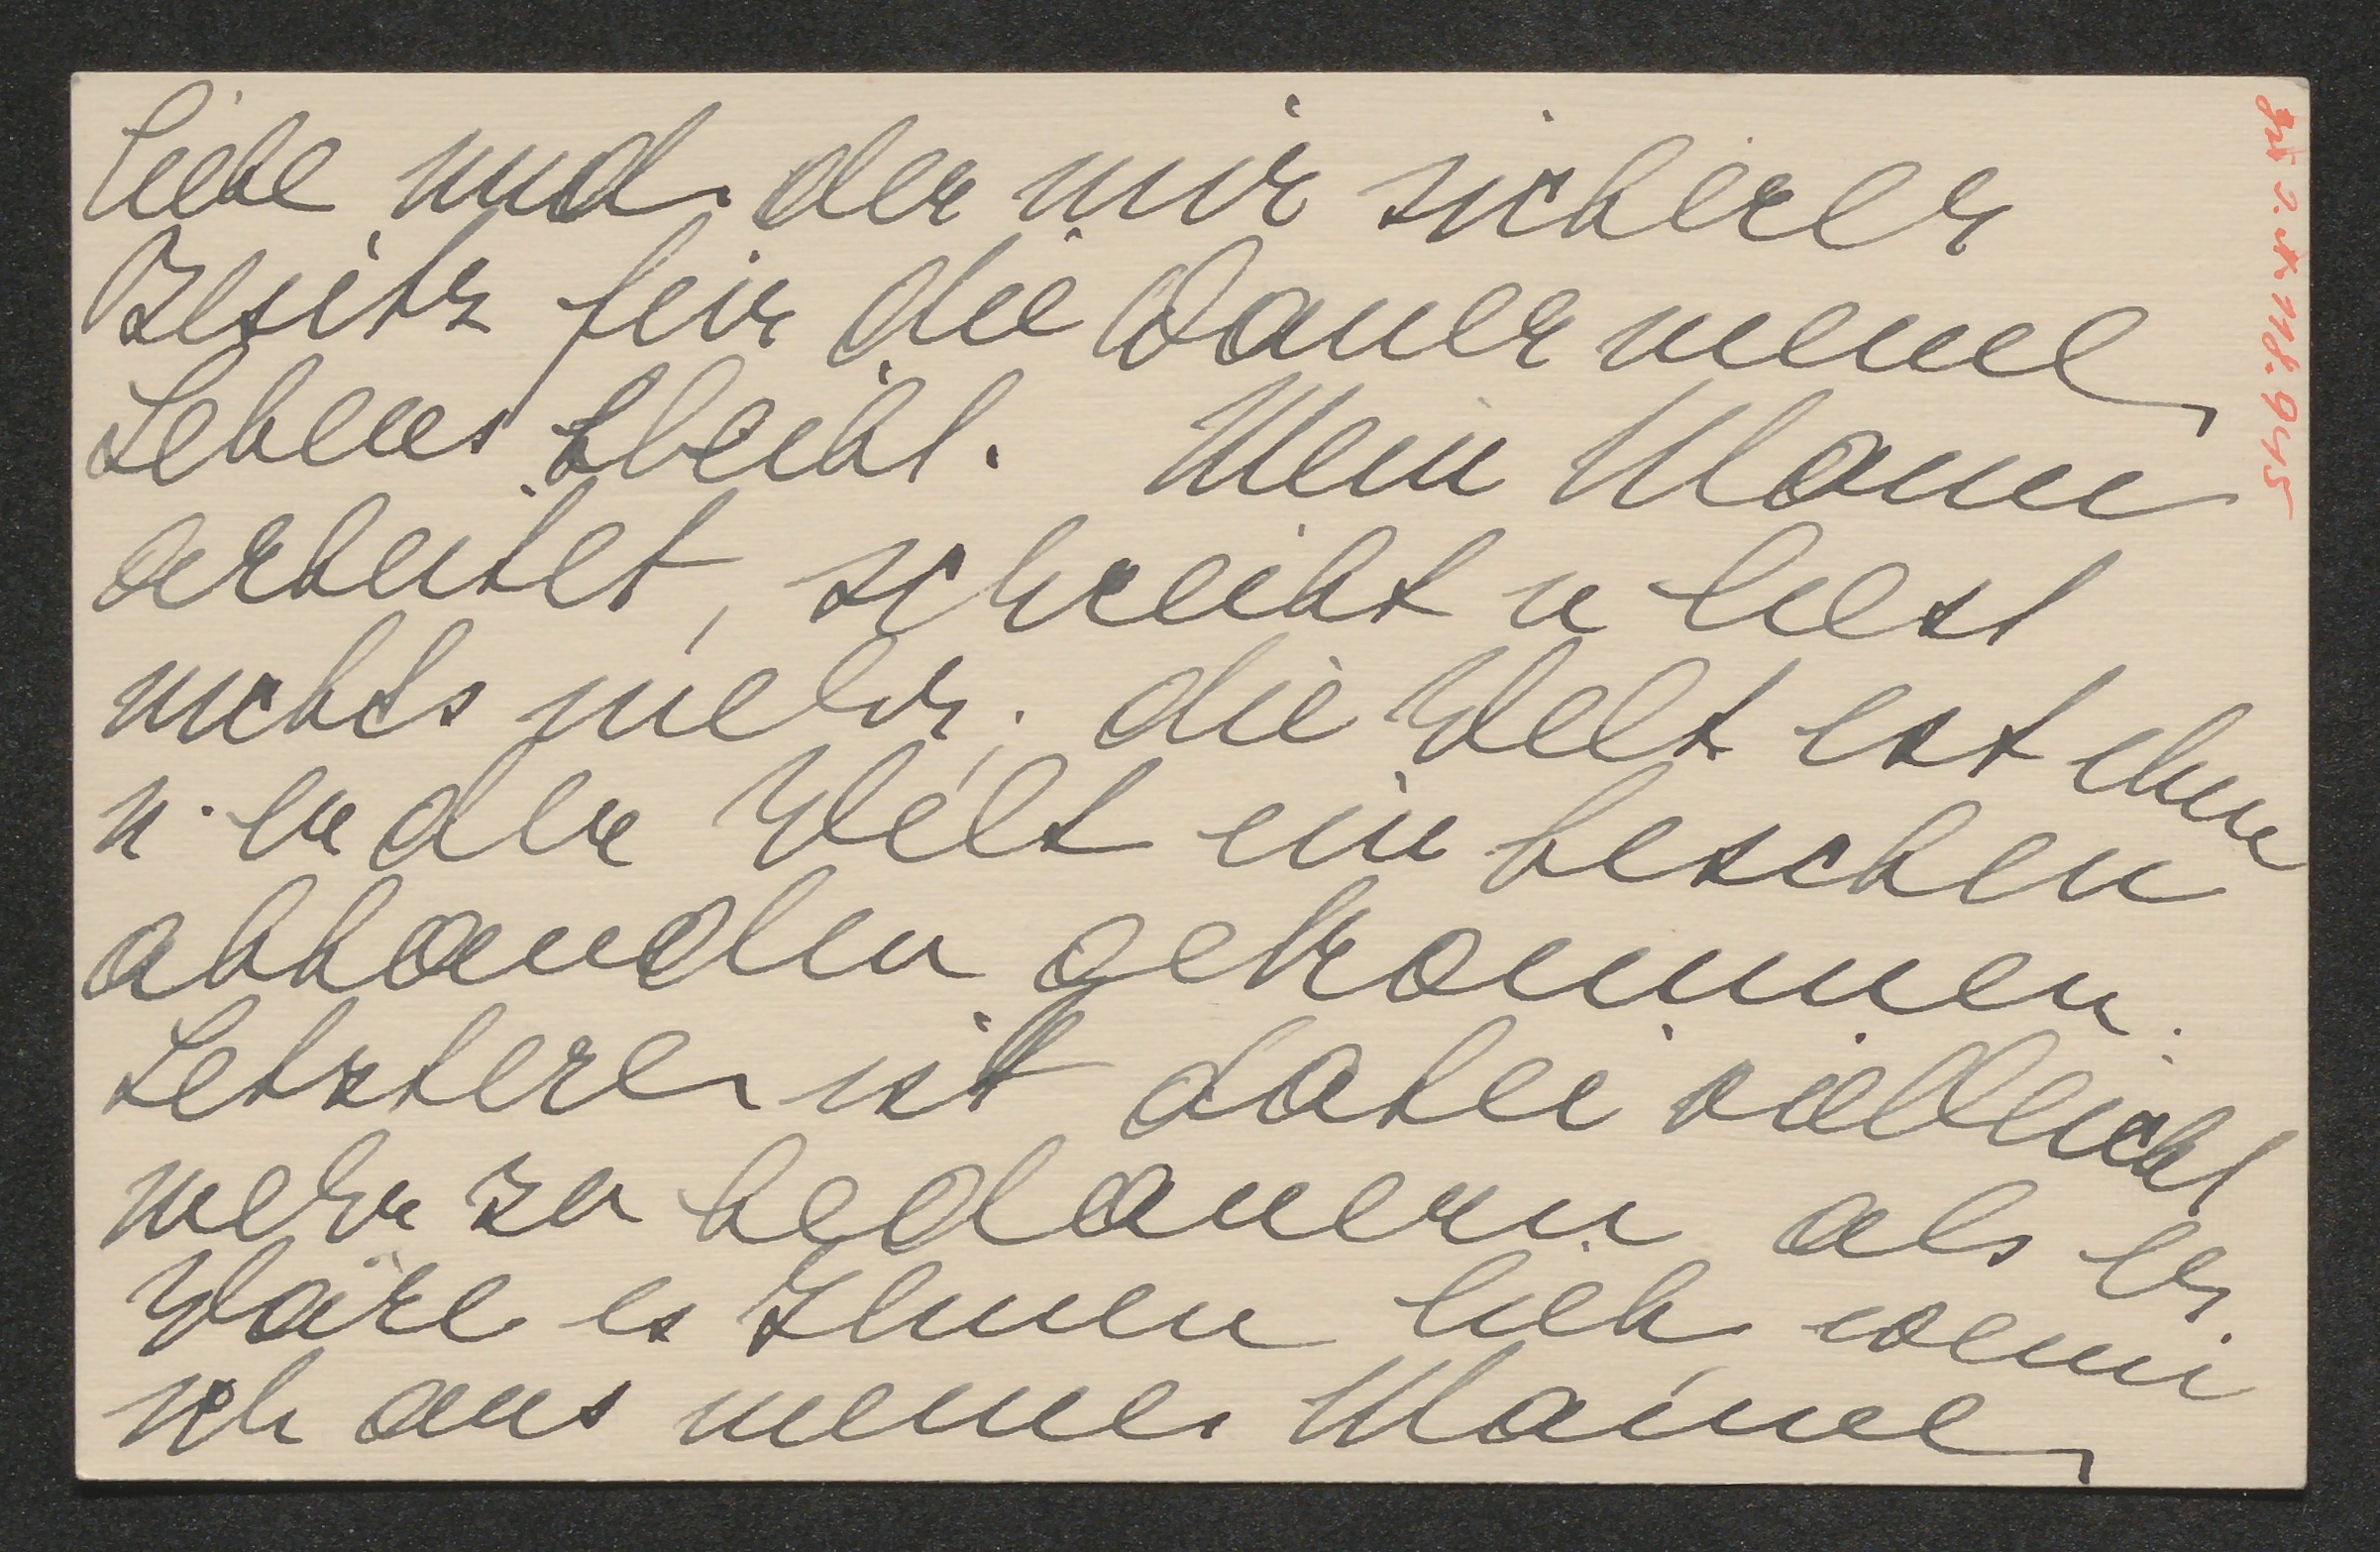 liebe und der mir sicherer
Besitz für die Dauer meines
Lebens bleibt. Mein Mann
arbeitet, schreibt u liest
nichts mehr; die Welt ist ihm
u. er der Welt ein beschen
abhanden gekommen.
Letztere ist dabei vielleicht
mehr zu bedauern als er.
Wäre es Ihnen lieb, wenn
ich aus meines Mannes